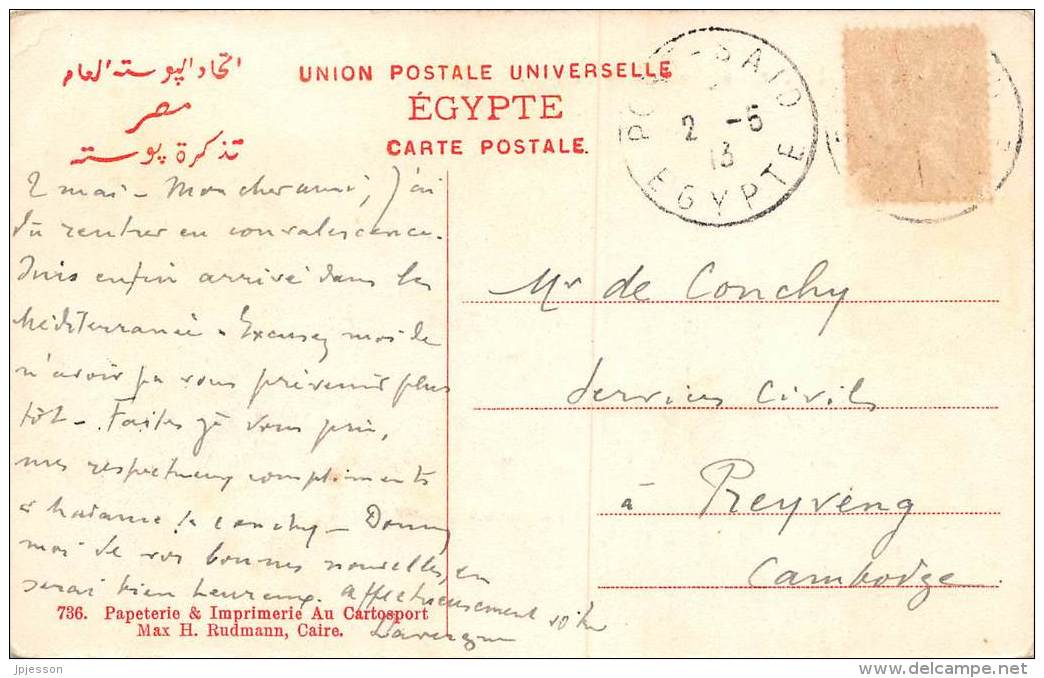 اتحاد البوسته العام
مصر
تذكرة بوسته
UNION POSTALE UNIVERSELLE
ÉGYPTE
CARTE POSTALE.
PORT-SAID
2 -5
13
EGYPTE
2 mai - Mon cher ami, j'ai
dû rentrer en convalescence.
Suis enfin arrivé dans la
Méditerranée. Excusez moi de
n'avoir pu vous prévenir plus
tôt - Faites je vous prie,
mes respectueux compliments
à Madame de Conchy - Donnez
moi de vos bonnes nouvelles, en
serai bien heureux. Affectueusement
Mr de Conchy
Services Civils
à Preyveng
Cambodge
736. Papeterie & Imprimerie Au Cartosport
Max H. Rudmann, Caire.
jpjesson
delcampe.net